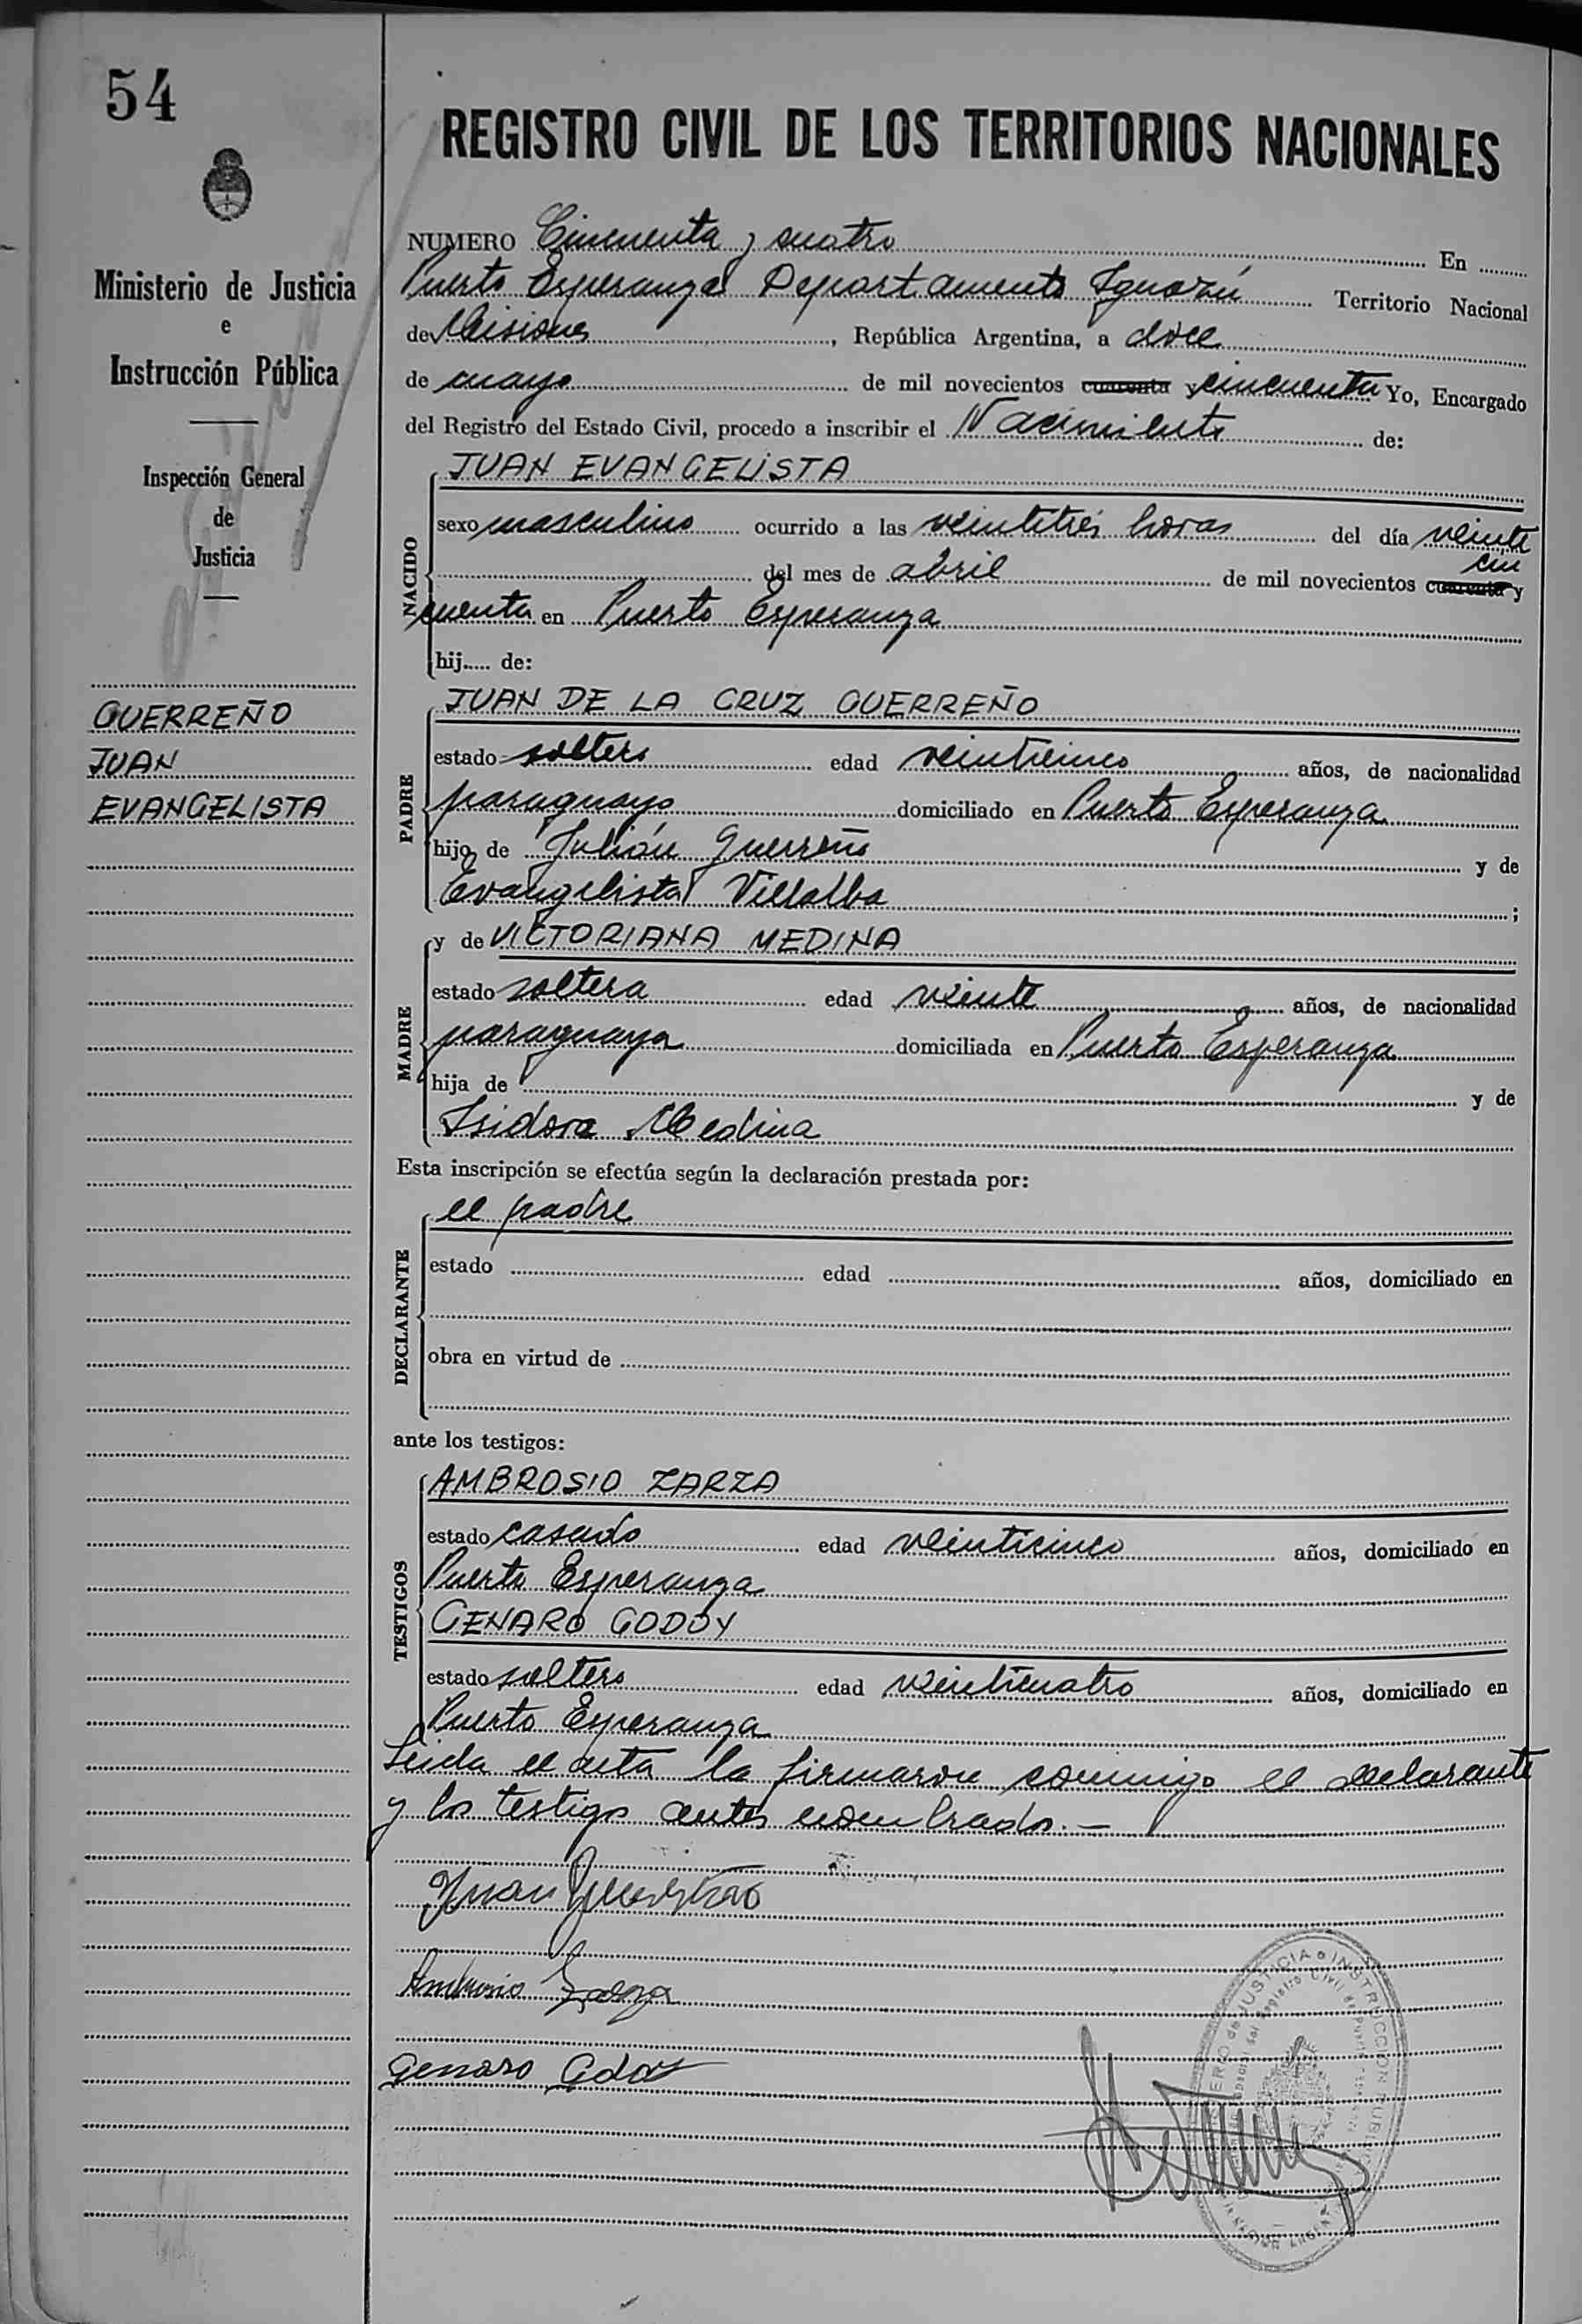 54
REGISTRO CIVIL DE LOS TERRITORIOS NACIONALES
Ministerio de Justicia
e
Instrucción Pública
Inspección General
de
Justicia
GUERREÑO
JUAN
EVANGELISTA
NUMERO Cincuenta y cuatro En
Puerto Esperanza Departamento Iguazú Territorio Nacional
de Misiones, República Argentina, a doce
de mayo de mil novecientos cuarenta y cincuenta Yo, Encargado
del Registro del Estado Civil, procedo a inscribir el Nacimiento de:
NACIDO
JUAN EVANGELISTA
sexo masculino ocurrido a las veintitrés horas del día veinte
del mes de abril de mil novecientos cuarenta y cin
cuenta en Puerto Esperanza
hij..... de:
PADRE
JUAN DE LA CRUZ GUERREÑO
estado soltero edad veinticinco años, de nacionalidad
paraguayo domiciliado en Puerto Esperanza
hijo de Julián Guerreño y de
Evangelista Villalba ;
MADRE
y de VICTORIANA MEDINA
estado soltera edad veinte años, de nacionalidad
paraguaya domiciliada en Puerto Esperanza
hija de y de
Isidora Medina
Esta inscripción se efectúa según la declaración prestada por:
DECLARANTE
el padre
estado edad años, domiciliado en
obra en virtud de
ante los testigos:
TESTIGOS
AMBROSIO ZARZA
estado casado edad veinticinco años, domiciliado en
Puerto Esperanza
GENARO GODOY
estado soltero edad veinticuatro años, domiciliado en
Puerto Esperanza
Leida el acta la firmaron conmigo el declarante
y los testigos antes nombrados.—
Juan Guerreño
Ambrosio Zarza
Genaro Godoy
JUSTICIA e INSTRUCCION PUBLICA
Registro Civil de